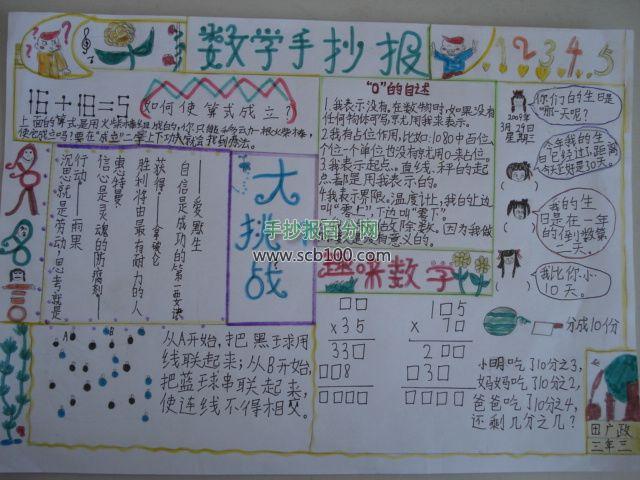 数学手抄报
1 2 3 4 5
16+18=5
如何使算式成立？
上面的算式是用火柴棒组成的,你只能移动一根火柴棒,
使它成立吗?要在“成立”二字上下功夫就会找到办法。
“0”的自述
1.我表示没有,在数物时,如果没有
任何物体可写,就用我来表示。
2.我有占位作用,比如:1080中占位,
个位一个单位也没有,就用0来占位。
3.我表示起点。直线、秤的起
点都是用我表示的。
4.我表示界限。温度计上,我的上边
叫“零上”,下边叫“零下”。
因为我做
是没有意义的。
2009年
3月29日
星期日
你们的生日是
哪一天呢?
今年我的生
日已经过了,距离
今天正好是30天。
我的生
日是在二年
的倒数第
二天。
我比你小
10天。
行动——雨果
沉思就是劳动,思考就是
信心是灵魂的防腐剂
胜利将由最有耐力的人
获得——拿破仑
自信是成功的第一要诀
——爱默生
大挑战
手抄报百分网
www.scb100.com
趣味数学
从A开始,把黑球用
线联起来;从B开始,
把蓝球串联起来,
使连线不得相交。
□□
×35
33□
□□8
□□□□
1□5
×7□
2□□
□3□
□□□□
分成10份
小明吃了10分之3,
妈妈吃了10分之2,
爸爸吃了10分之4,
还剩几分之几?
田广政
三年三